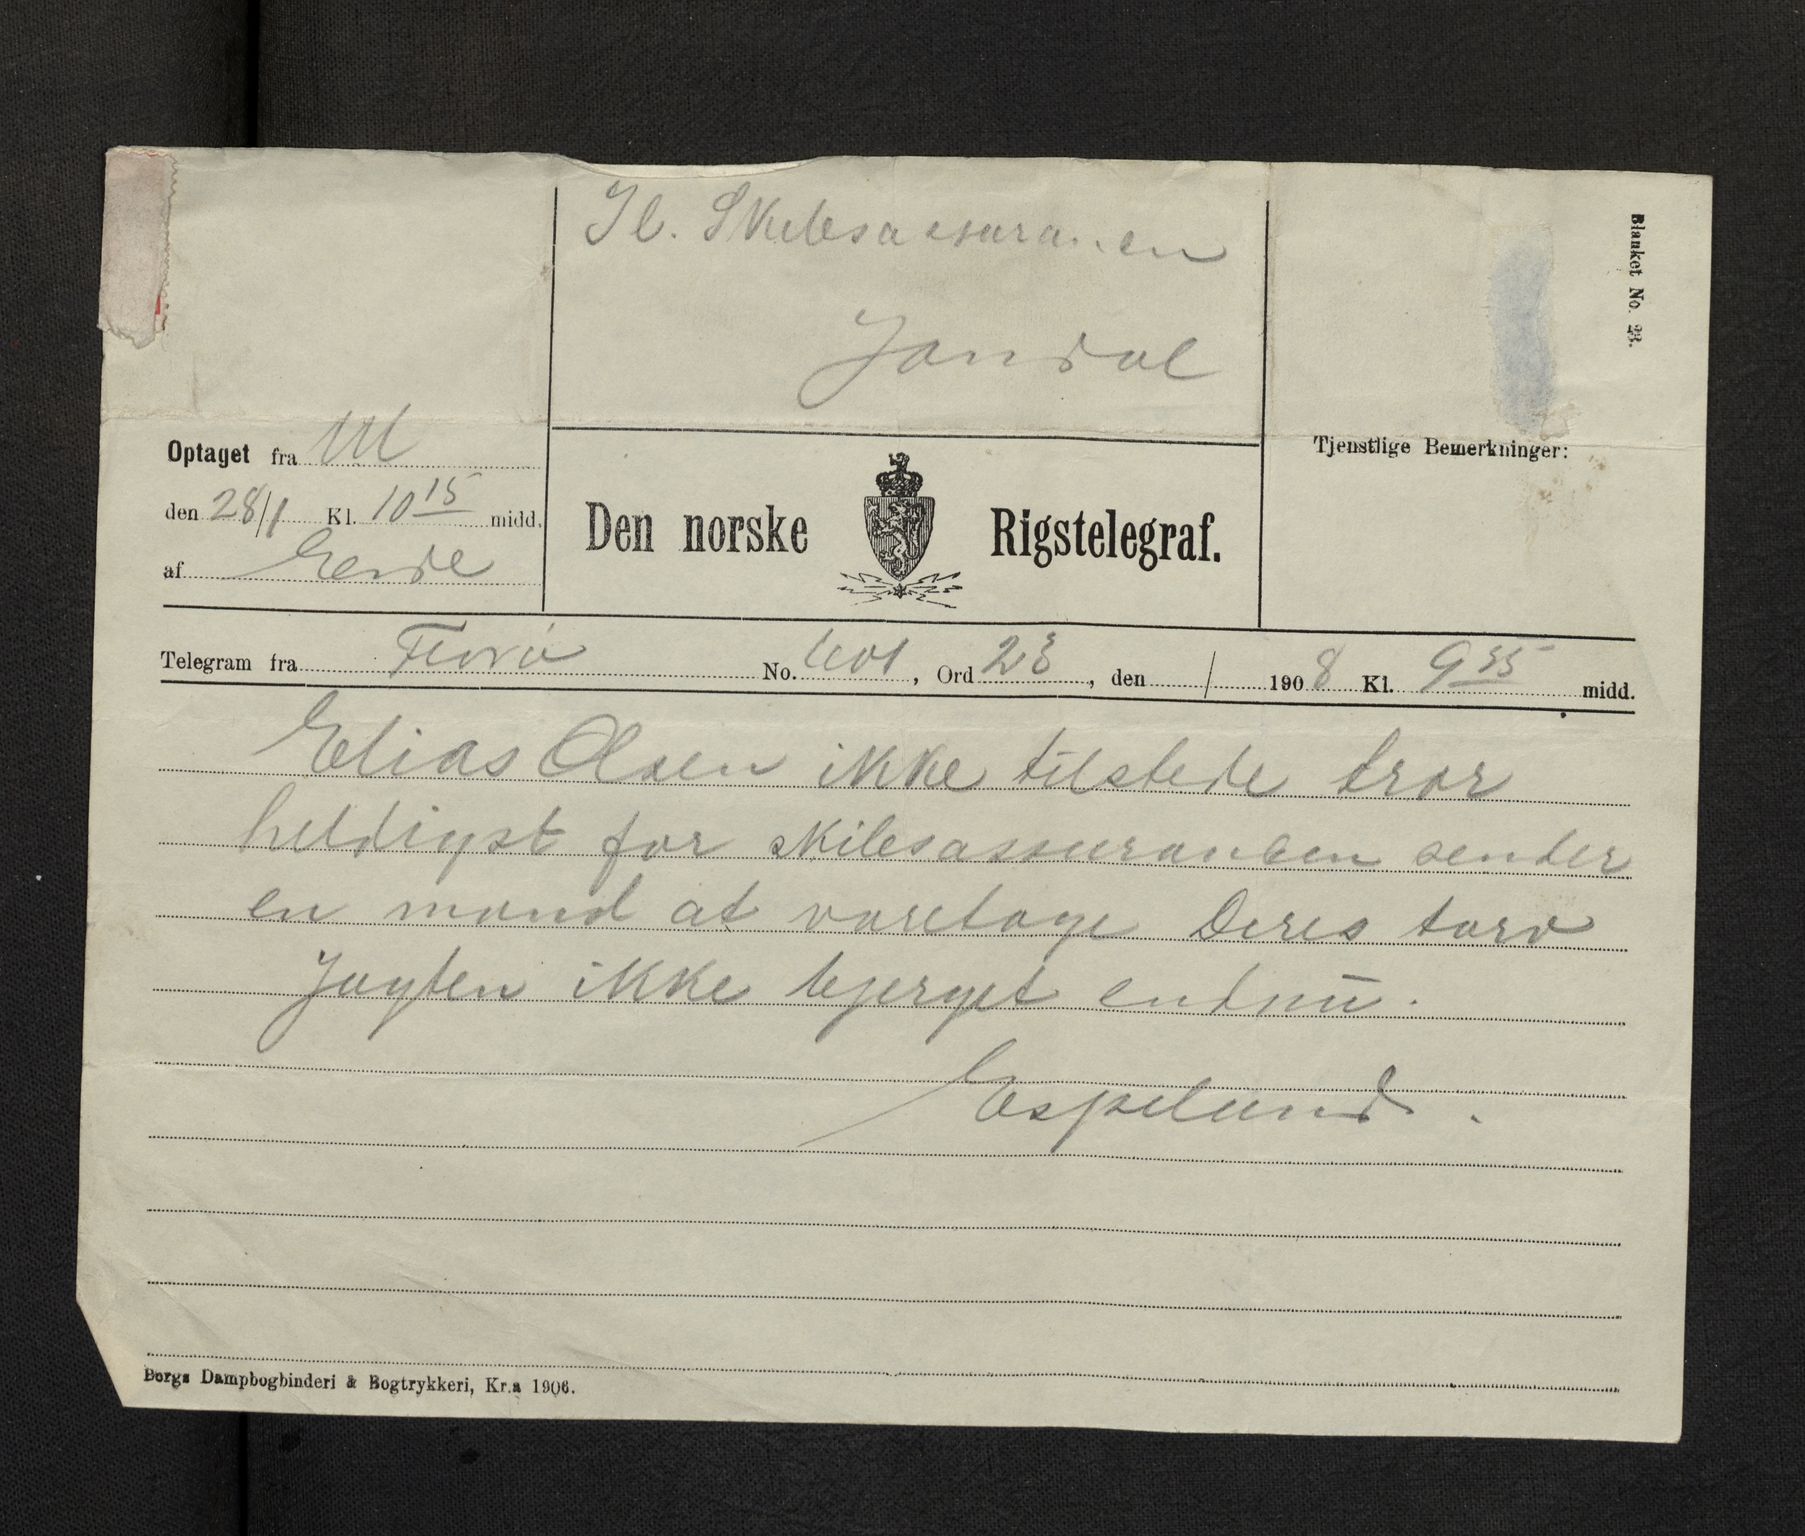 Il. Skibsassuranсen
Jondal
Blanket No. 23.
Optaget fra
den 28/1 Kl. 10 15 midd.
af
Den norske Rigstelegraf.
Tjenstlige Bemerkninger:
Telegram fra Florø No. 601, Ord 23, den / 1908 Kl. 9 35 midd.
Elias Olsen ikke tilstede tror
heldigst for skibsassurancen sender
en mand at varetage Deres tarv
Jagten ikke bjerget endnu.
Espeland.
Bergs Dampbogbinderi & Bogtrykkeri, Kr.a 1906.